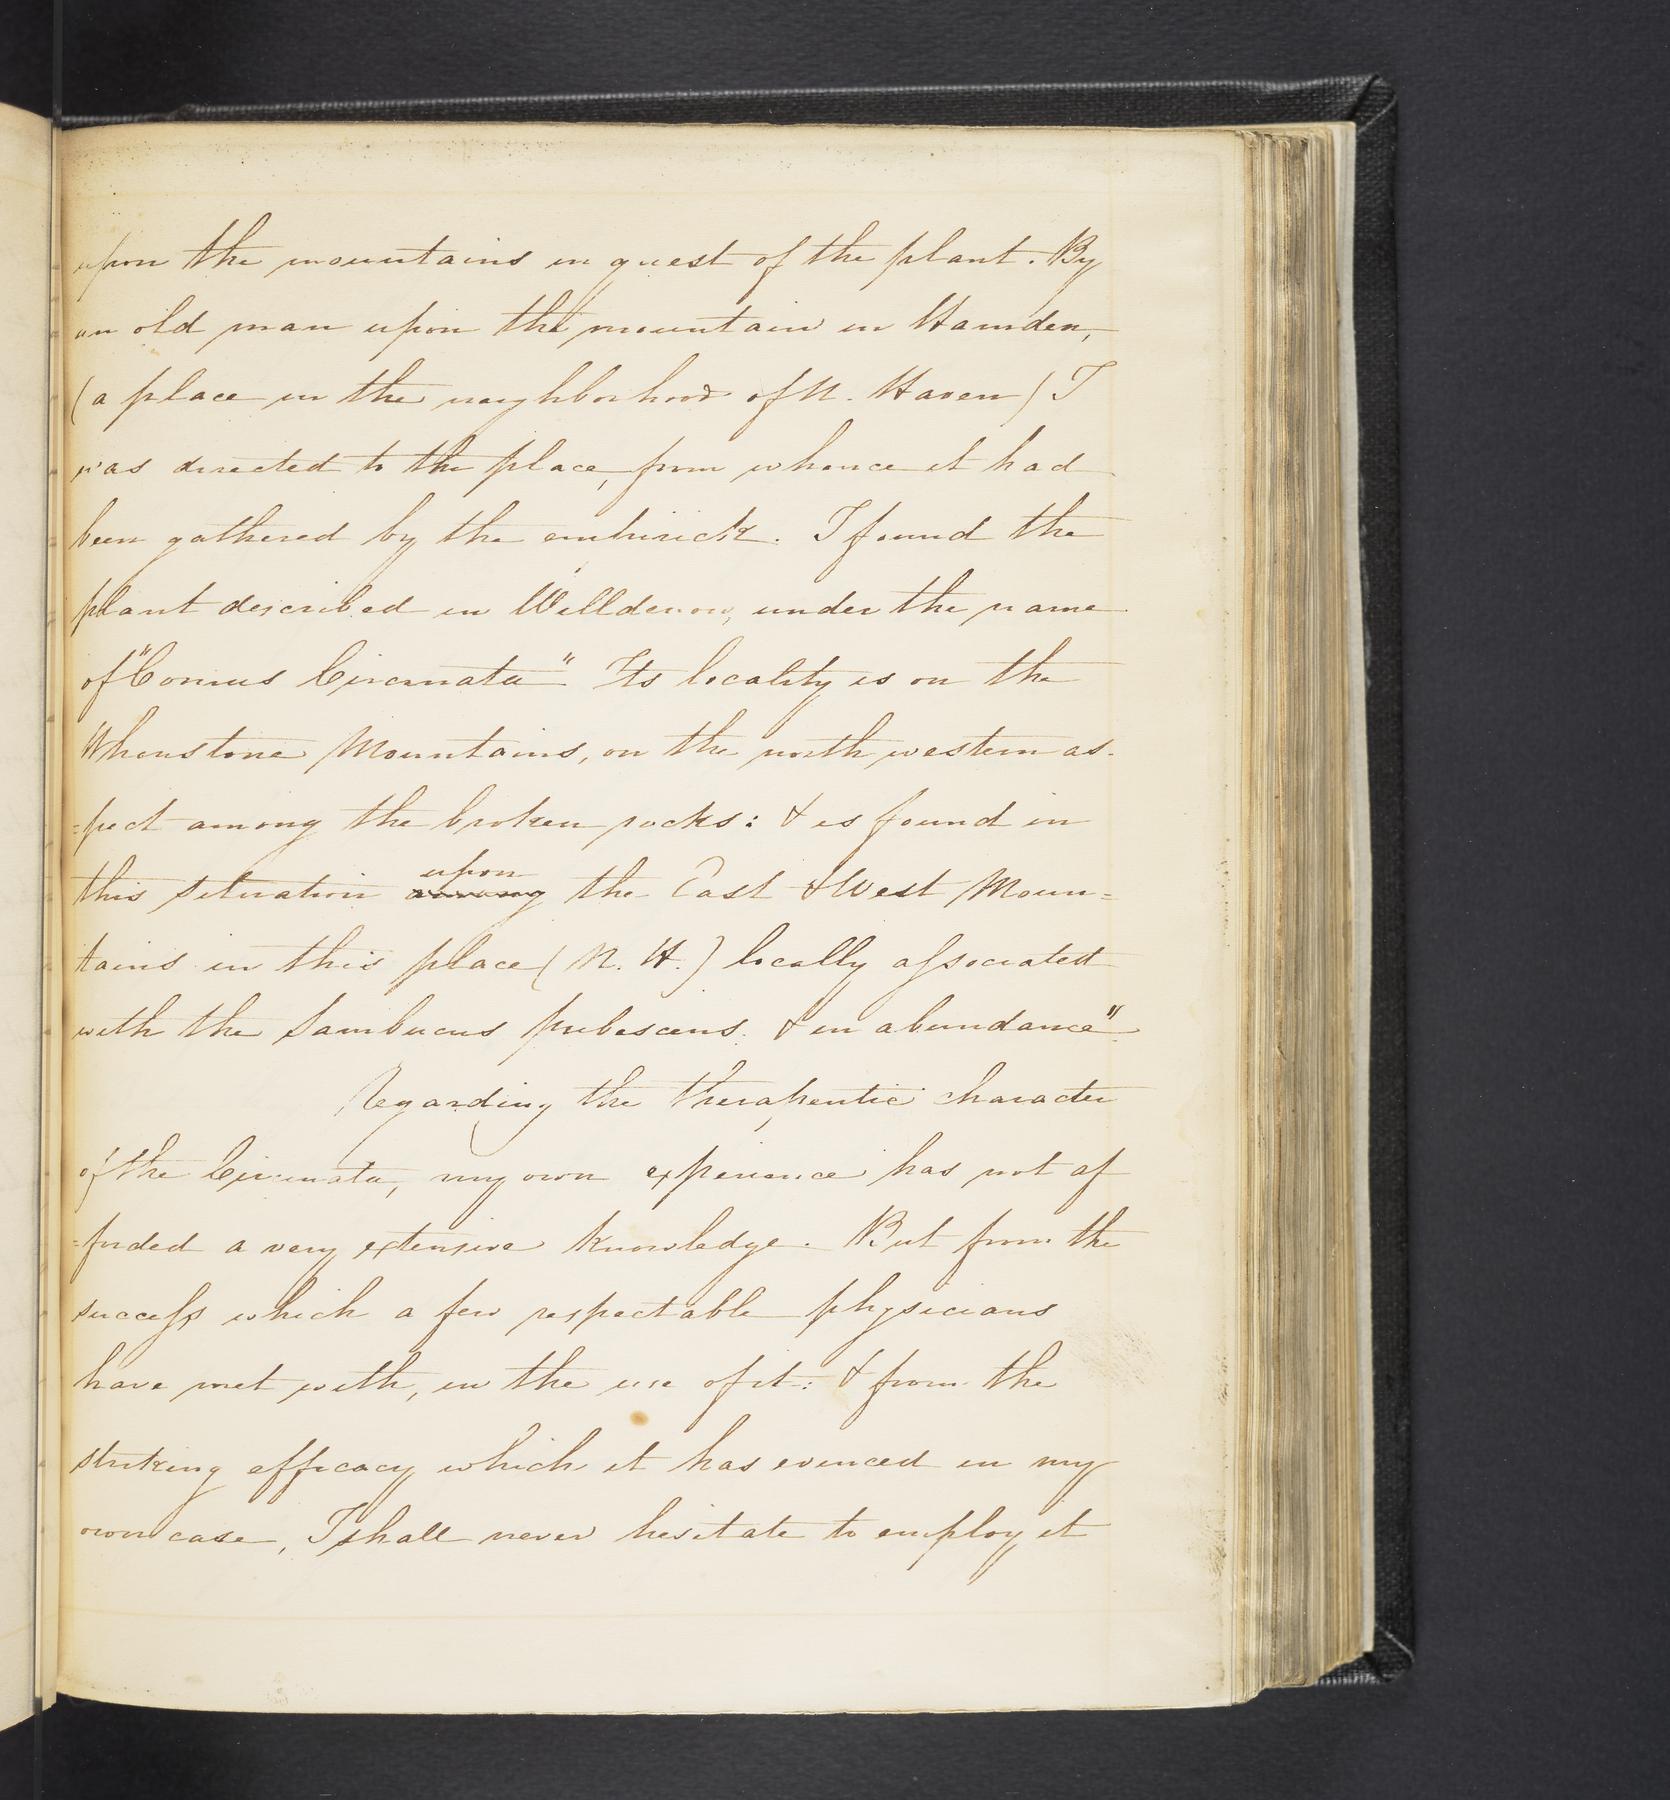 upon the mountains in quest of the plant. By
an old man upon the mountain in Hamden,
(a place in the neighborhood of N. Haven) I
was directed to the place, from whence it had
been gathered by the embirick. I found the
plant described in Willdenow, under the name
of "Cornus Circinata" Its locality is on the
Whenstone Mountains, on the north western as-
=pect among the broken rocks: & is found in
upon
this situation among the East & West Moun=
tains in this place (N. H.) locally associated
with the Sambucus pubescens. & in abundance"
Regarding the therapeutic character
of the Circinata, my own experience has not af
=forded a very extensive knowledge. But from the
success which a few respectable physicians
have met with, in the use of it: & from the
striking efficacy which it has evinced in my
own case, I shall never hesitate to employ it